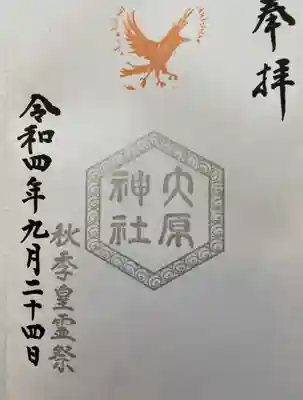 奉拝
大原
神社
秋季皇霊祭
令和四年九月二十四日